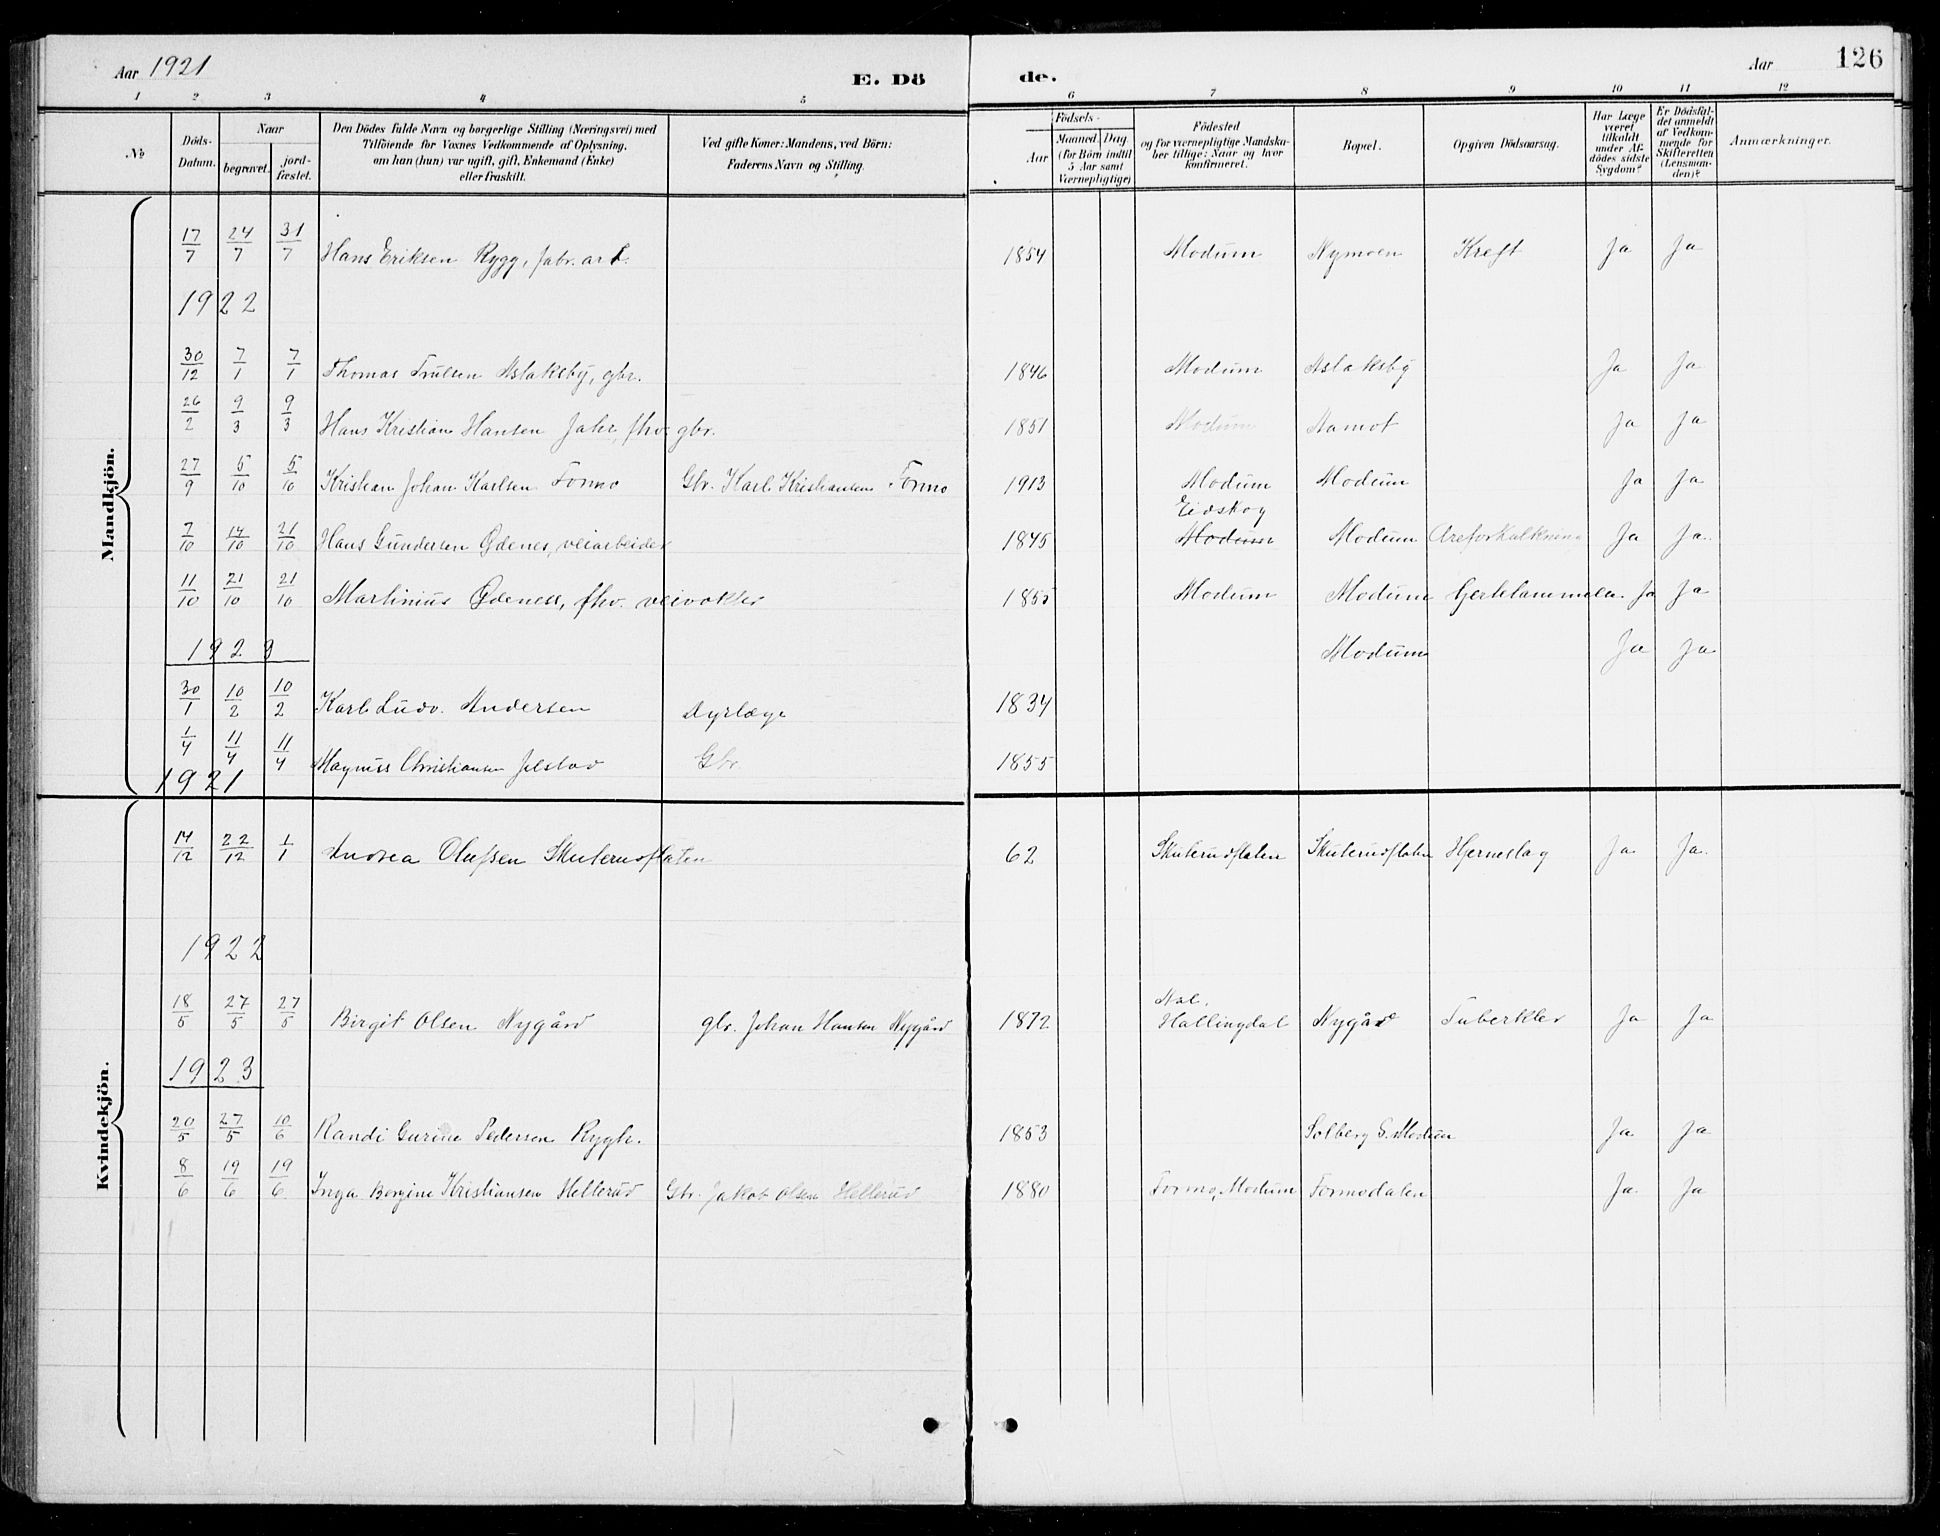 Aar 1921 E. Dö de. Aar 126
1 2 3 4 5 6 7 8 9 10 11 12
No
Döds-Datum.
Naar
begravet.
jord-fæstet.
Den Dödes fulde Navn og borgerlige Stilling (Næringsvei) med
Tilföiende for Voxnes Vedkommende af Oplysning,
om han (hun) var ugift, gift, Enkemand (Enke)
eller fraskilt.
Ved gifte Koner: Mandens, ved Börn:
Faderens Navn og Stilling.
Födsels-
Aar
Maaned Dag
(for Börn indtil
5 Aar samt
Værnepligtige)
Födested
og for værnepligtige Mandska-
ber tillige: Naar og hvor
konfirmeret.
Bopæl.
Opgiven Dödsaarsag.
Har Læge
været
tilkaldt
under Af-
dödes sidste
Sygdom?
Er Dödsfal-
det anmeldt
af Vedkom-
mende for
Skifteretten
(Lensman-
den)?
Anmærkninger.
Mandkjön.
17/7 24/7 31/7 Hans Eriksen Rygg, fabr. arb. 1854 Modum Nymoen Kreft Ja Ja
1922
30/12 7/1 7/1 Thomas Trulsen Aslaksby, gbr. 1846 Modum Aslaksby Ja Ja
26/2 9/3 9/3 Hans Kristian Hansen Jahr, fhv. gbr. 1851 Modum Aamot Ja Ja
27/9 5/10 5/10 Kristian Johan Karlsen Formo Gbr. Karl Kristiansen Formo 1913 Modum Modum Ja Ja
Eidskog
7/10 14/10 21/10 Hans Gundersen Ødenes, veiarbeider 1845 Modum Modum Areforkalkning Ja Ja
11/10 21/10 21/10 Martinius Ødeness, fhv. veivokter 1855 Modum Modum Hjertelammelse Ja Ja
1923 Modum Ja Ja
30/1 10/2 10/2 Karl Ludv. Andersen Dyrlæge 1834
1/4 11/4 11/4 Magnus Christiansen Jelstad Gbr. 1855
1921
Kvindekjön.
14/12 22/12 1/1 Andrea Olufsen Skuterudflaten 62 Skuterudflaten Skuterudflaten Hjerneslag Ja Ja
1922
Aal,
18/5 27/5 27/5 Birgit Olsen Nygård gbr. Johan Hansen Nygård 1872 Hallingdal Nygård Tuberkler Ja Ja
1923
20/5 27/5 10/6 Randi Gurine Pedersen Rygh. 1853 Solberg S. Modum Ja Ja
8/6 19/6 19/6 Inga Bergine Kristiansen Hellerud Gbr. Jakob Olsen Hellerud 1880 Formo, Modum Formodalen Ja Ja